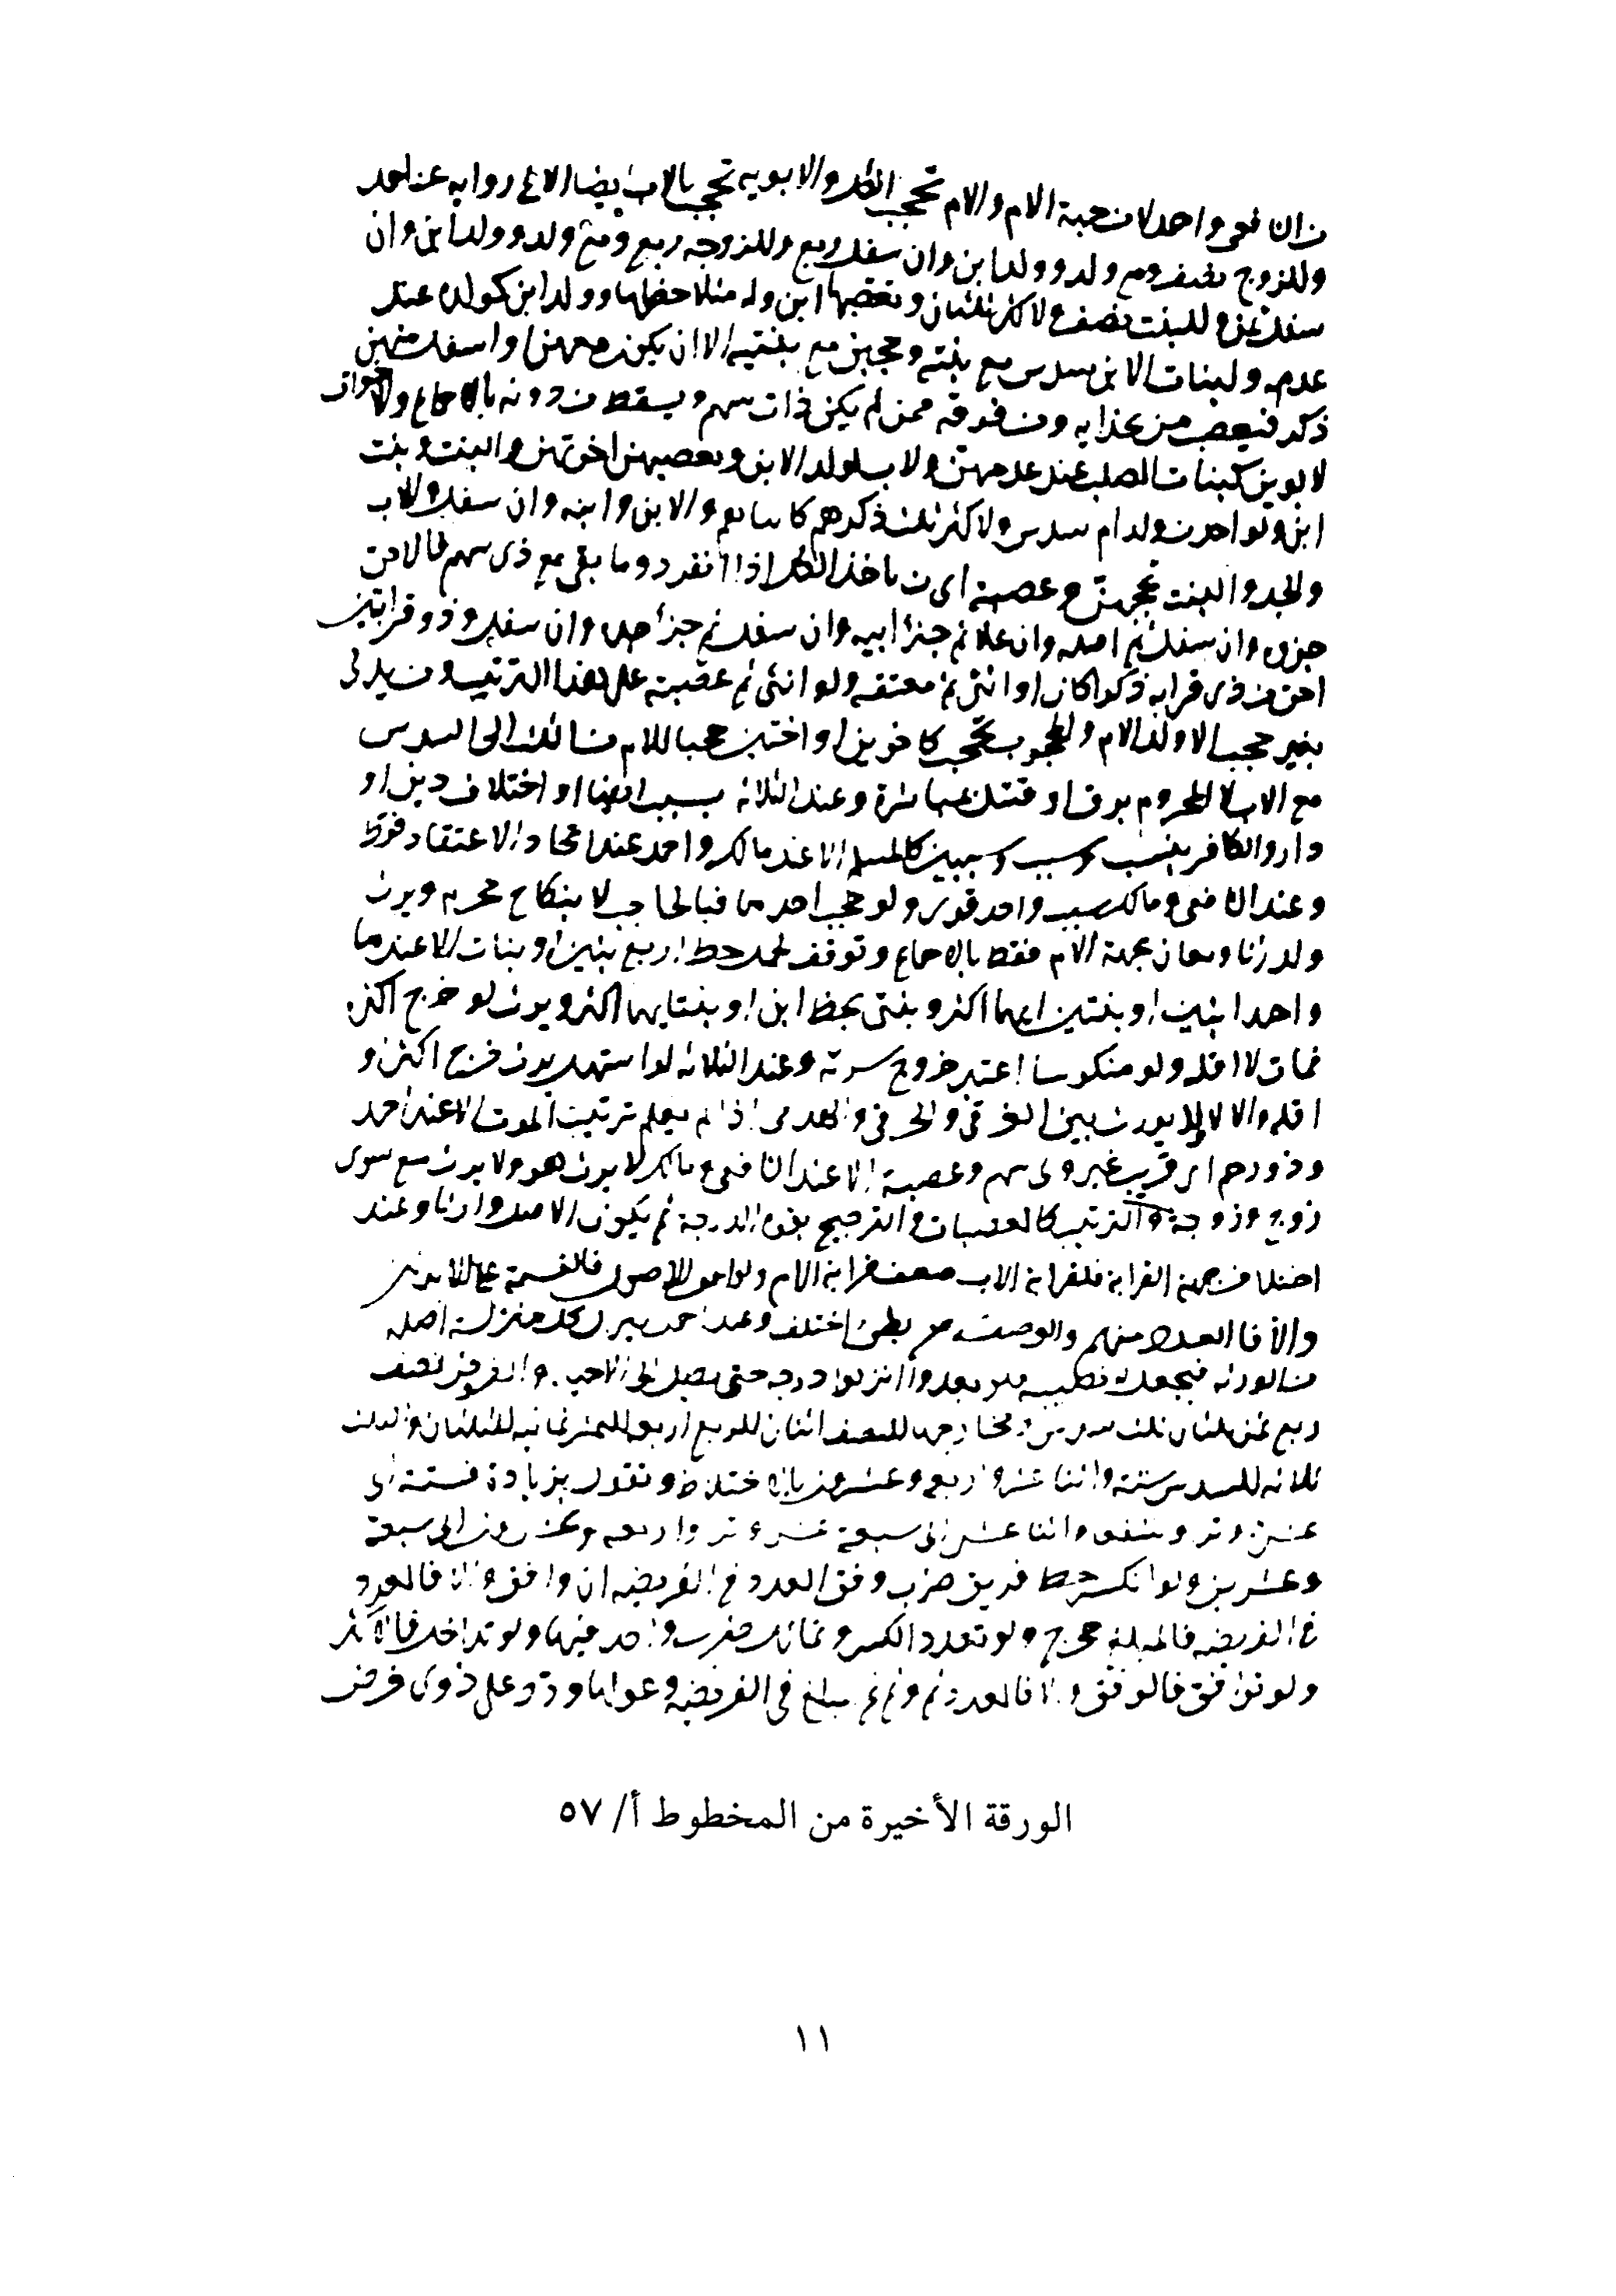 واحدا من جهة الام والام تحجب الكل والابويه تحجب بالاب ايضا الا في رواية عند احمد
وللزوج نصف ومع ولد وولد ابن وان سفل ربع وللزوجه ربع ومع ولد وولد ابن وان
سفل ثمن وللبنت نصف ولاكثر ثلثان وتعصبها ابن وله مثلا حظها وولد ابن كولده عند
عدمه ولبنات الابن سدس مع بنته وحجبن مع بنتيه الا ان يكون معهن او اسفل منهن
ذكر فيعصب من بحذايه ومن فوقه ممن لم يكن ذات سهم ويسقط من دونه بالاجماع والاخوات
لابوين كبنات الصلب عند عدمهن ولاب لولد الابن وتعصبهن اخوتهن والبنت وبنت
ابن ولواحد من ولد ام سدس ولاكثر ثلث ذكرهم كانثاهم والابن وابنه وان سفل والاب
والجد والبنت تحجبهن وعصبة اى من ياخذ الكل اذا انفرد وما بقى مع ذى سهم فالاحق
جزوه وان سفل ثم اصله وان علا ثم جزء ابيه وان سفل ثم جزء جده وان سفل وذو قرابتين
احق من ذى قرابه ذكرا كان او انثى ثم معتقه ولو انثى ثم عصبته على هذا الترتيب ومن يدلى
بغير حجب الا ولد الام والمحجوب يحجب كاخوين او اختين حجبا للام من الثلث الى السدس
مع الاب لا المحروم برق او قتل مباشرة وعند الثلاثه بسبب ايضا او اختلاف دين او
دار والكافر بنسب وسبب وسببين كالمسلم الا عند مالك واحمد عند اتحاد الاعتقاد فقط
وعند الشافعى ومالك بسبب واحد قوى ولو حجب احدهما فبالحاجب لا بنكاح محرم ويرث
ولد زنا ولعان بجهة الام فقط بالاجماع وتوقف لحمل حظ اربع بنين او بنات الا عندهما
واحدا بنين او بنتين ايهما اكثر وبفتى بحظ ابن او بنت ايهما اكثر ويرث لو خرج اكثره
فمات لا اقله ولو منكوسا اعتبر خروج سرته وعند الثلاثه لو استهل يرث خرج اكثره او
اقله والا لا ولا يورث بين الغرقى والحرقى والهدمى اذا لم يعلم ترتيب الموت الا عند احمد
وذو رحم اى قريب غير ذى سهم وعصبة الا عند الشافعى ومالك لا يرث هو ولا يرث مع سوى
زوج وزوجة والترتيب كالعصبات والترجيح بقرب الدرجة ثم بكون الاصل وارثا وعند
اختلاف جهة القرابة فلقرابة الاب ضعف قرابة الام ولو اصول فالقسمة على الابدان
والا فالعدد منهم والوصف من بطن اختلف وعند احمد ينزل كل منزلة اصله
من الورثه فيجعل له نصيبه ولو بعدوا انزلوا درجه حتى يصل الى الاحيا. والفروض نصف
ربع ثمن ثلثان ثلث سدس ومخارجها للنصف اثنان للربع اربعة للثمن ثمانيه للثلثان والثلث
ثلاثه للسدس ستة واثنا عشر واربعه وعشرون بالاختلاط وتعول بزيادة فستة الى
عشرة وتر وشفعا واثنا عشر الى سبعة عشر وتر واربعه وعشرون الى سبعة
وعشرين ولو انكسر حظ فريق ضرب وفق العدد فى الفريضه ان وافق والا فالعدد
فى الفريضه فالمبلغ مخرج ولو تعدد الكسر وتماثل ضرب واحد فيها ولو تداخل فالاكثر
ولو توافق فالوفق والا فالعدد ثم وثم ثم مبلغ فى الفريضه وعولها ورد على ذوى فرض
الورقة الأخيرة من المخطوط أ/ ٥٧
١١